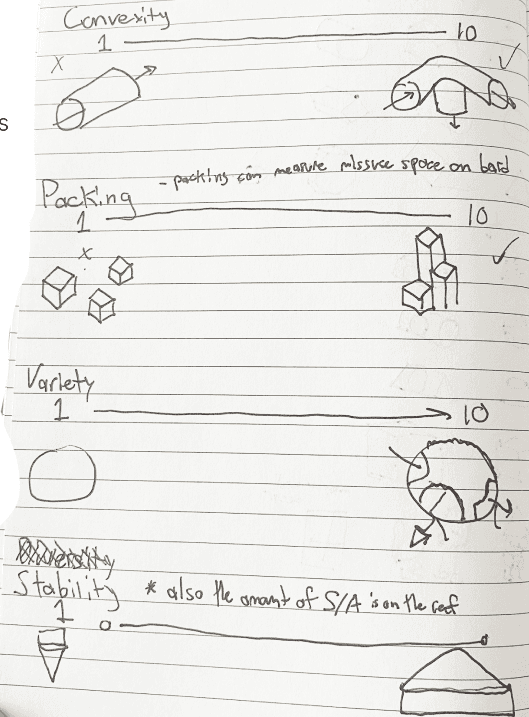 s
Convexity
1 10
X
Packing - packing can measure missuse space on bord
1 10
x
Variety
1 10
Stability * also the amount of S/A is on the reef
1